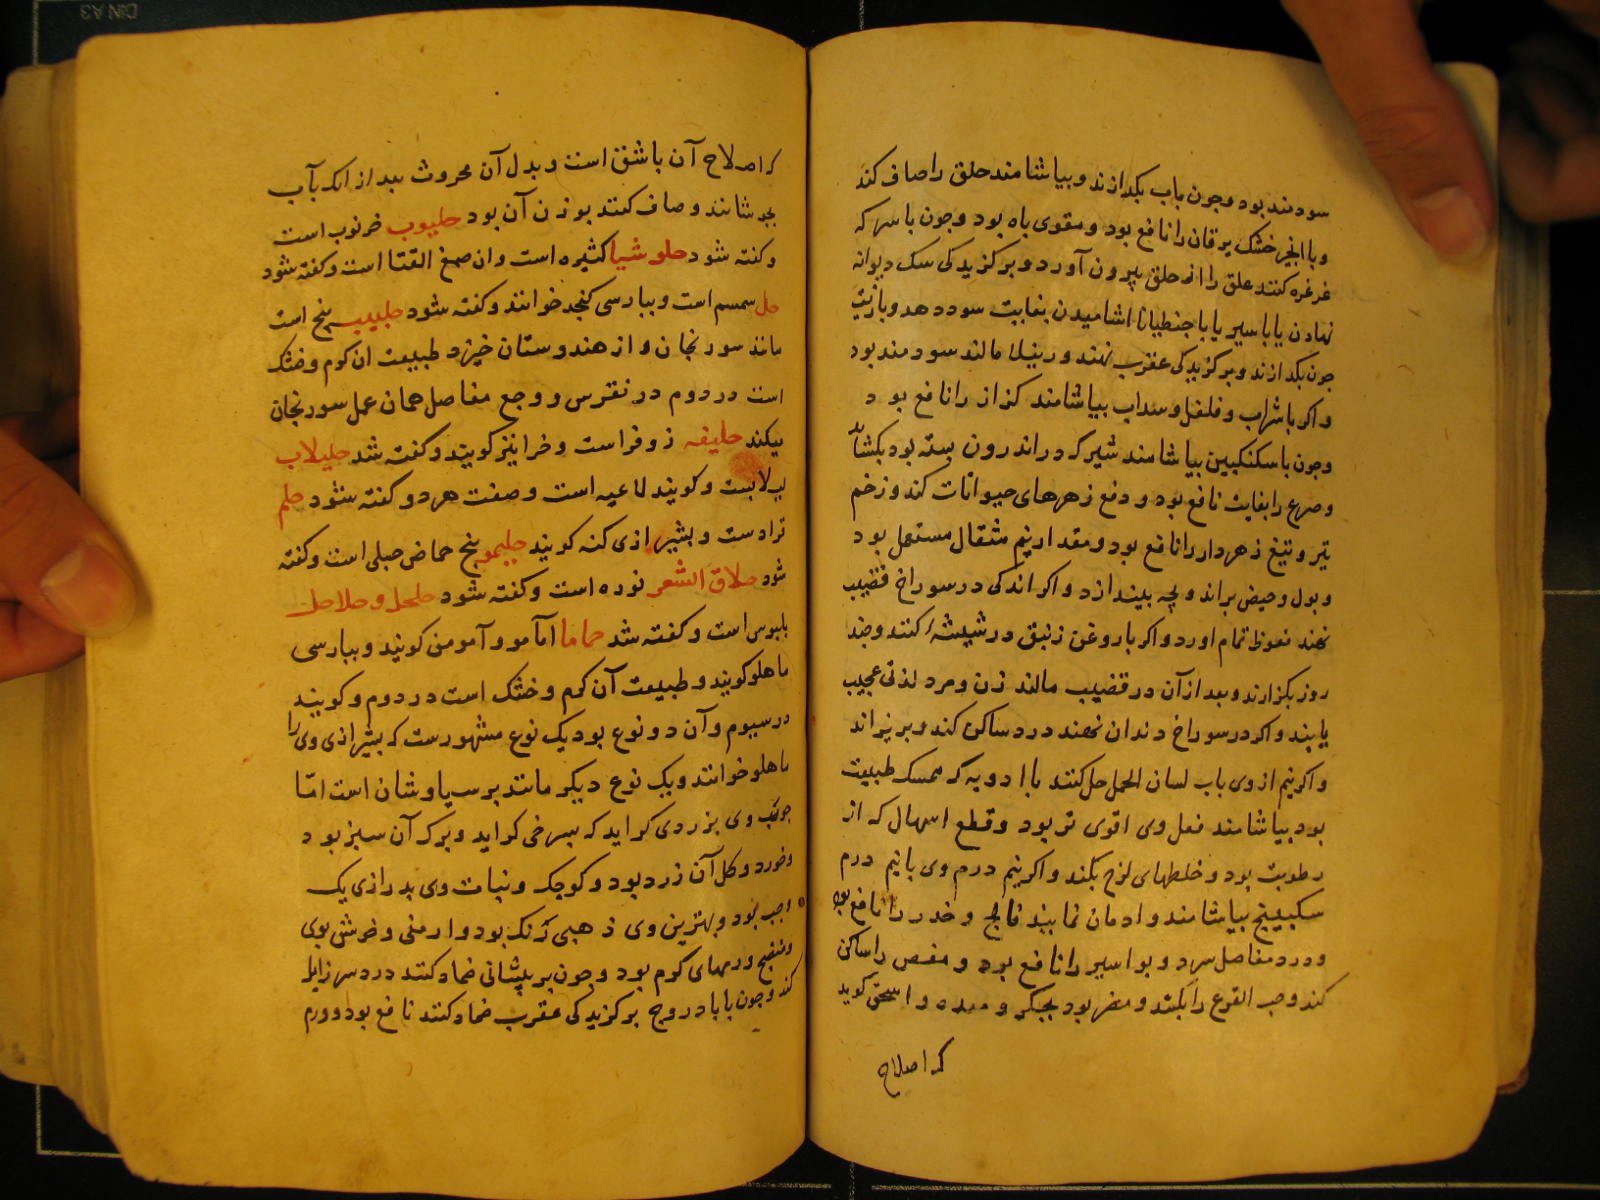 سودمند بود و چون باب بکدازند و بیاشامند حلق را صاف کند
و با انجیر خشک یرقان را نافع بود و مقوی باه بود و جون با سرکه
غرغره کنند علق را از حلق بیرون آورد و بر کزیدکی سک دیوانه
نهادن یا با سیر یا با جنطیانا اشامیدن بغایت سود دهد و با زیت
جون بکدازند و بر کزیدکی عقرب نهند و رتیلا مالند سودمند بود
و اکر با شراب و فلفل و سداب بیاشامند کزاز را نافع بود
و جون با سکنکبین بیاشامند شیر که در اندرون بسته بود بکشاید
و صرع را بغایت نافع بود و دفع زهرهای حیوانات کند و زخم
تیر و تیغ زهردار را نافع بود و مقدار نیم مثقال مستعمل بود
و بول و حیض براند و بچه بیندازد و اکر اندکی در سوراخ قضیب
نهند نعوظ تمام اورد و اکر با روغن زنبق در شیشه کنند و چند
روز بکزارند و بعد از آن در قضیب مالند زن و مرد لذتی عجیب
یابند و اکر در سوراخ دندان نهند درد ساکن کند و بریزاند
و اکر نیم از وی باب لسان الحمل حل کنند با ادویه که ممسک طبیعت
بود بیاشامند فعل وی اقوی تر بود و قطع اسهال که از
رطوبت بود و خلطهای لزج بکند و اکر نیم درم وی با نیم درم
سکبینج بیاشامند و ادمان نمایند فالج و خدر را نافع بود
و درد مفاصل سرد و بواسیر را نافع بود و مغص را ساکن
کند و حب القرع را بکشد و مضر بود بجکر و معده و اسحق کوید
که اصلاح
که اصلاح آن باشق است و بدل آن محروث بعد از انک بآب
بجوشانند و صاف کنند بوزن آن بود حلبوب خرنوب است
و کفته شود حلوشیا کثیره است وان صمغ القتا است و کفته شود
حل سمسم است و بپارسی کنجد خوانند و کفته شود حلبیب بیخ است
مانند سورنجان و از هندوستان خیزد طبیعت ان کرم و خشک
است در دوم در نقرس و وجع مفاصل همان عمل سورنجان
میکند حلیفه زوفراست و خرا نیز کویند و کفته شد حلبلاب
لبلابست و کویند لاعیه است و صفت هر دو کفته شود حلم
قرادست و بشیرازی کنه کویند حلیمو بیخ حماض جبلی است و کفته
شود حلاق الشعر نوره است و کفته شود حلحل و حلاحل
بلبوس است و کفته شد حماما امامو و آمومن کویند و بپارسی
ماهلو کویند و طبیعت آن کرم و خشک است در دوم و کویند
در سیوم و آن دو نوع بود یک نوع مشهورست که بشیرازی وی را
ماهلو خوانند و یک نوع دیکر مانند پرسیاوشان است اما
جوب وی بزردی کراید که بسرخی کراید و برک آن سبز بود
و خورد و کل آن زرد بود و کوچک و نبات وی بدرازی یک
وجب بود و بهترین وی ذهبی رنک بود و ارمنی و خوش بوی
و منضج ورمهای کرم بود و جون بر پیشانی ضماد کنند درد سر زایل
کند و جون با بادروج بر کزیدکی عقرب ضماد کنند نافع بود و ورم